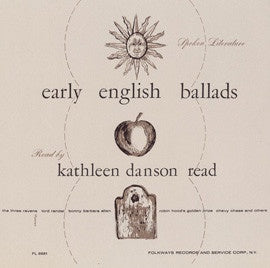 Spoken Literature
early english ballads
Read by
kathleen danson read
the three ravens lord randal bonny barbara allen robin hood's golden prize chevy chase and others
FOLKWAYS RECORDS AND SERVICE CORP., N.Y.